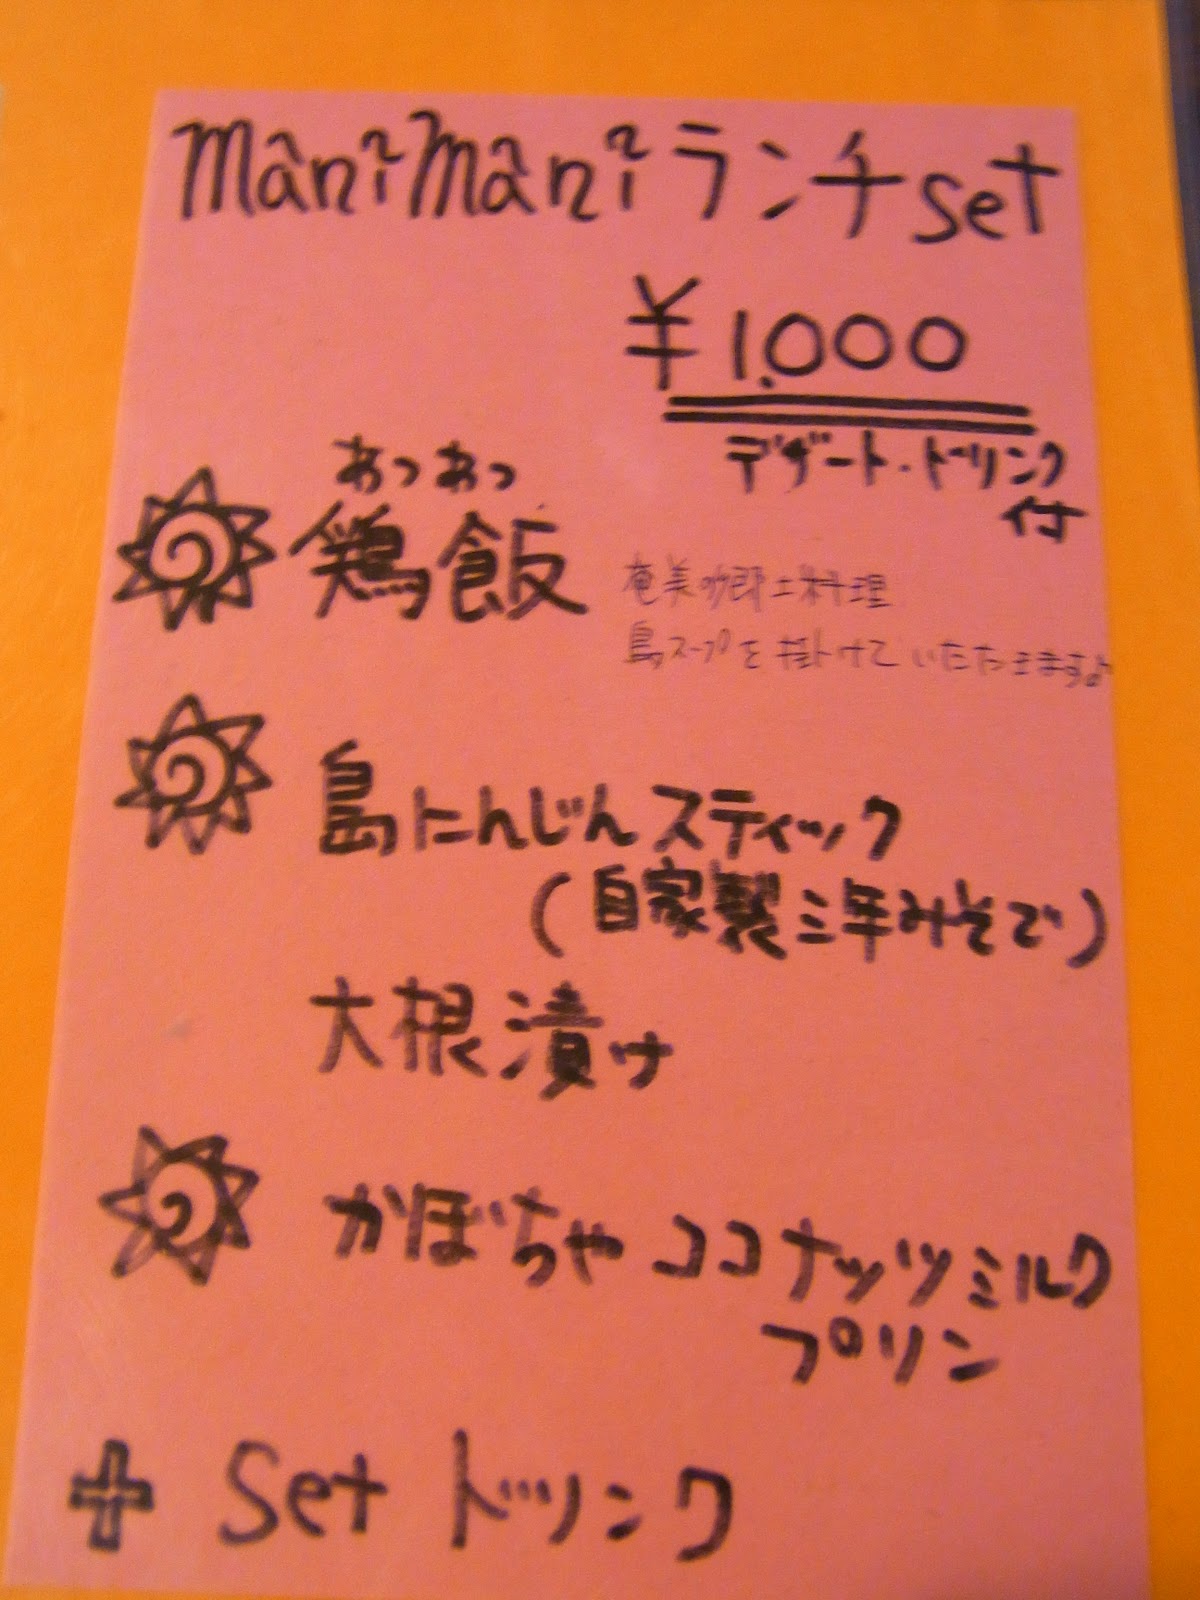 manimaniランチset
¥1,000
デザート・ドリンク
付
あつあつ
鶏飯
奄美の郷土料理
島スープを掛けていただきます♪
島にんじんスティック
(自家製三年みそで)
大根漬け
かぼちゃココナッツミルク
プリン
+ Set ドリンク